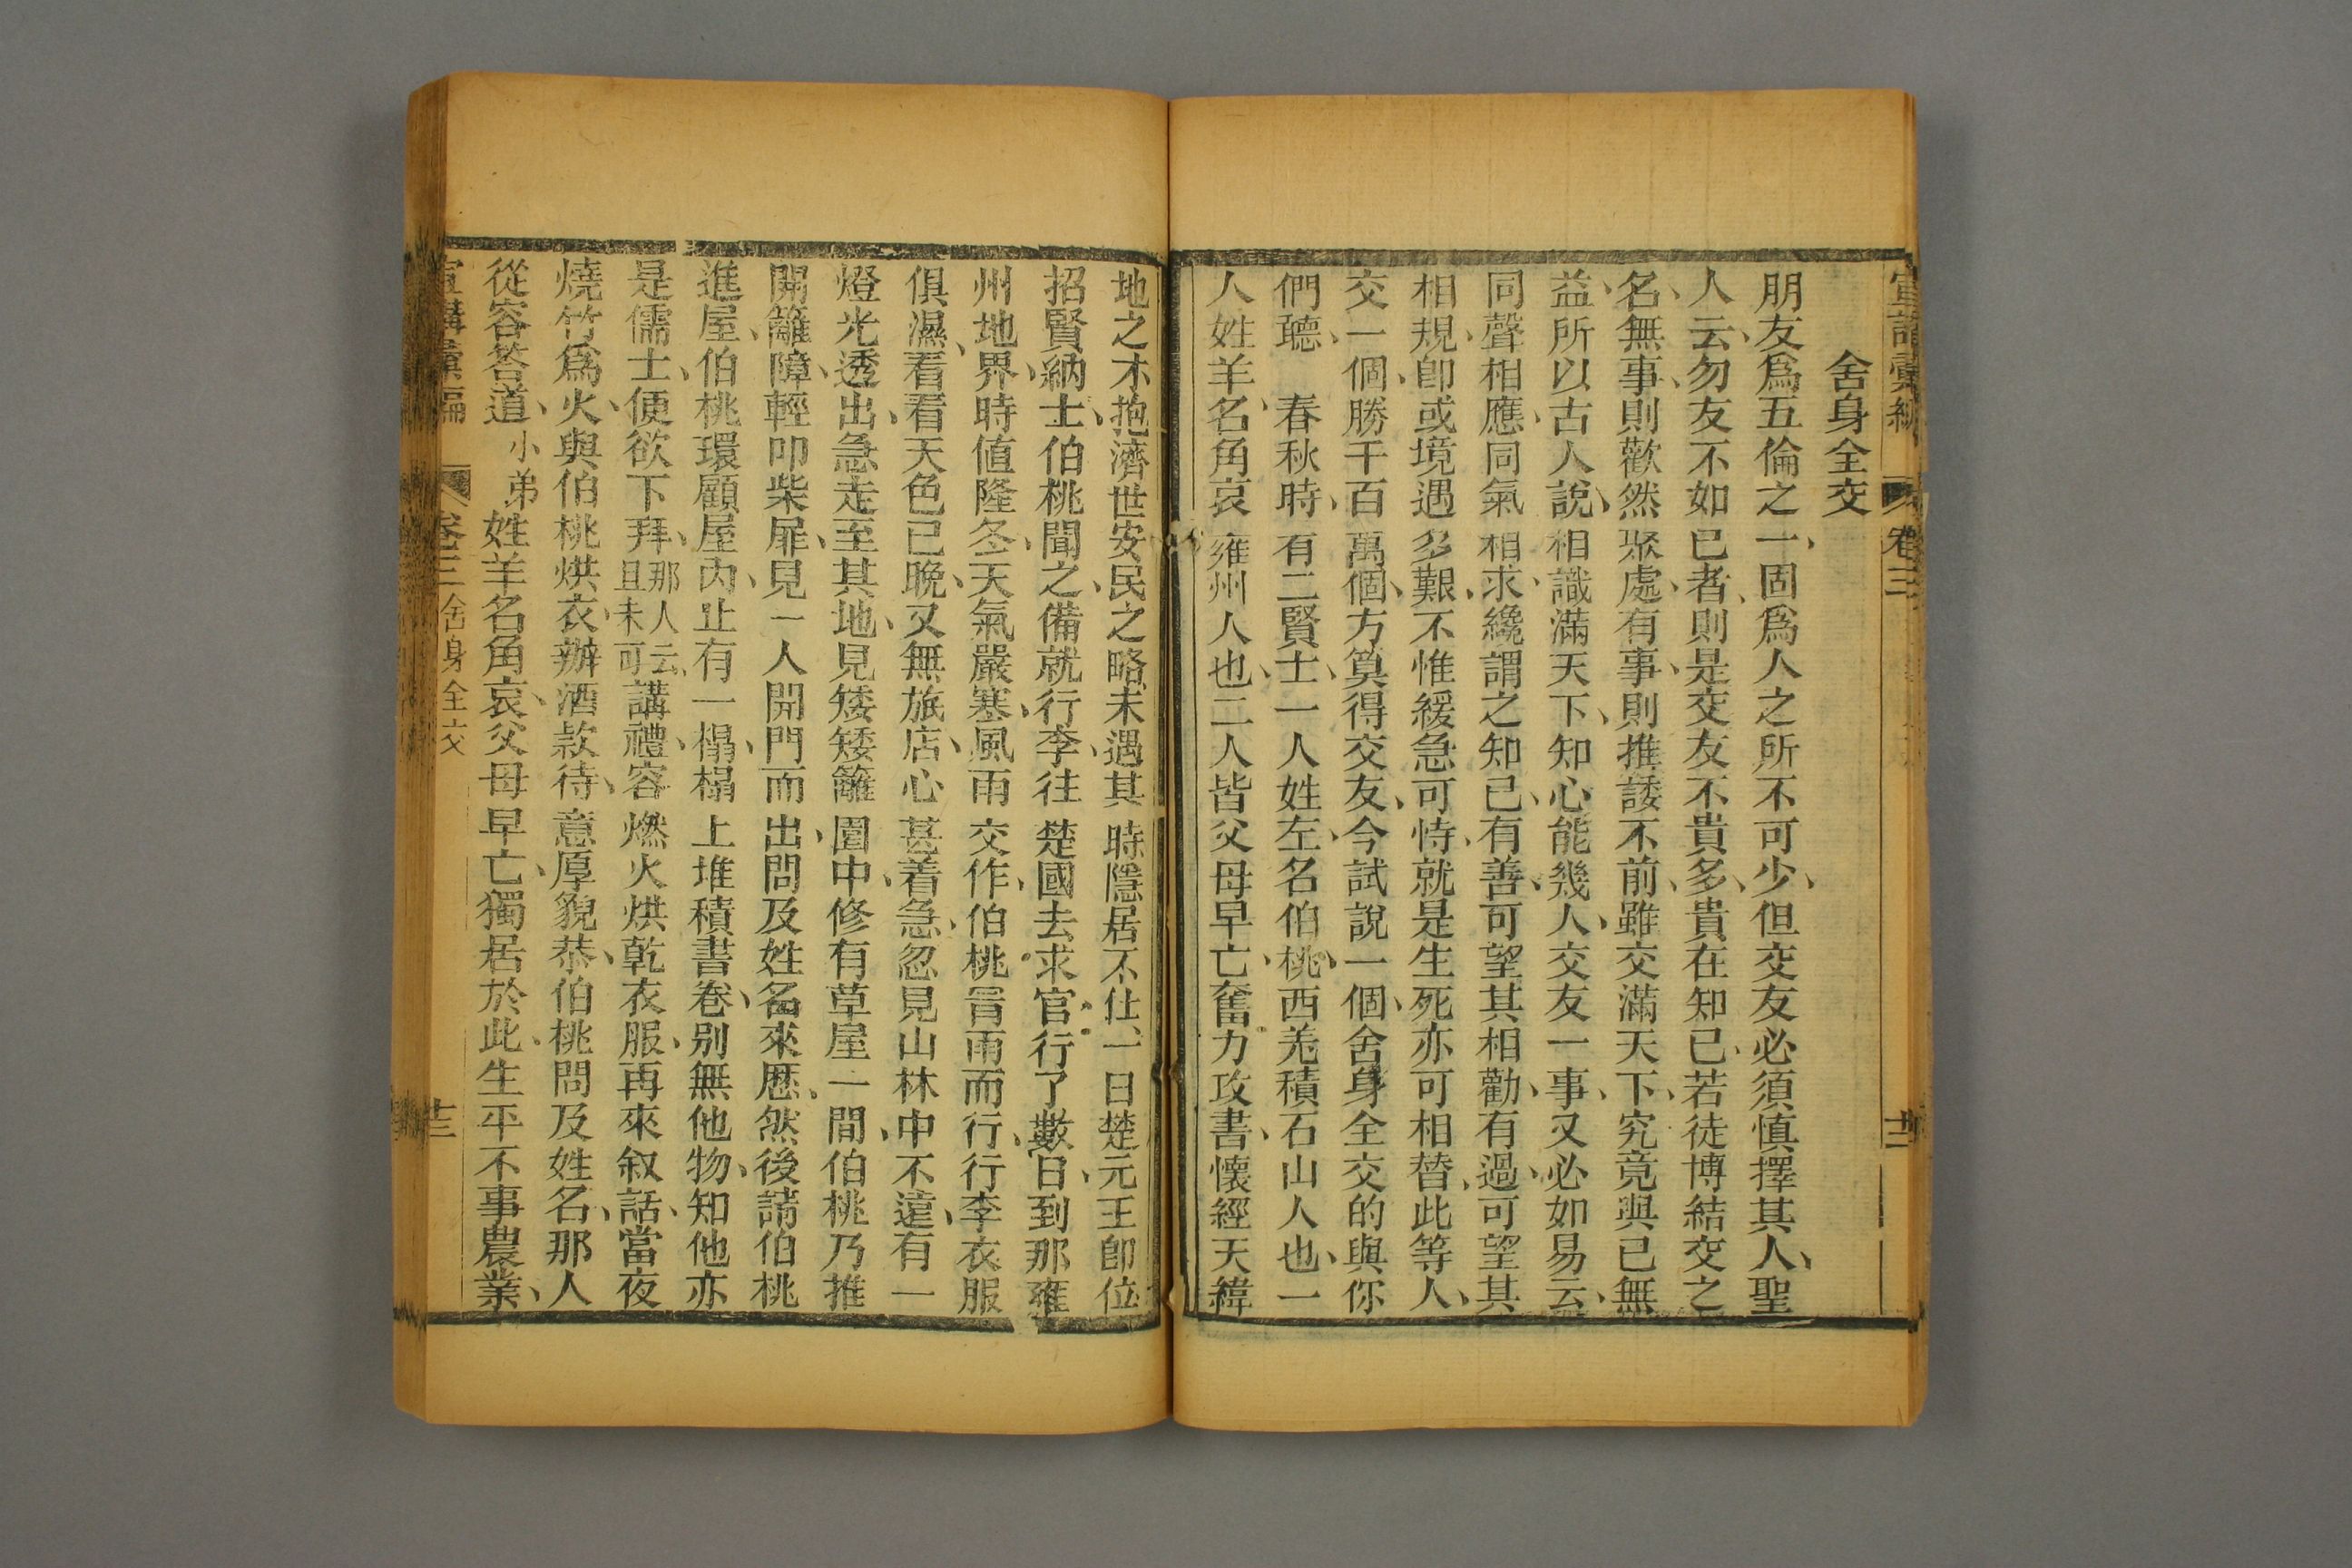 宣講彙編 卷三 十二
舍身全交
朋友爲五倫之一、固爲人之所不可少、但交友必須慎擇其人、聖
人云、勿友不如己者、則是交友不貴多、貴在知己、若徒博結交之
名、無事、則歡然聚處、有事、則推諉不前、雖交滿天下、究竟與己無
益、所以古人說、相識滿天下、知心能幾人、交友一事、又必如易云、
同聲相應、同氣相求、纔謂之知己、有善、可望其相勸、有過、可望其
相規、卽或境遇多艱、不惟緩急可恃、就是生死亦可相替、此等人、
交一個、勝千百萬個、方算得交友、今試說一個、舍身全交的與你
們聽、 春秋時、有二賢士、一人姓左、名伯桃、西羌積石山人也、一
人姓羊、名角哀、雍州人也、二人皆父母早亡、奮力攻書、懷經天緯
地之才、抱濟世安民之略、未遇其時、隱居不仕、一日楚元王卽位
招賢納士、伯桃聞之、備就行李、往楚國去求官、行了數日、到那雍
州地界、時值隆冬、天氣嚴寒、風雨交作、伯桃冒雨而行、行李衣服
俱濕、看看天色已晚、又無旅店、心甚着急、忽見山林中不遠、有一
燈光透出、急走至其地、見矮矮籬圍中、修有草屋一間、伯桃乃推
開籬障、輕叩柴扉、見一人開門而出、問及姓名來歷、然後請伯桃
進屋、伯桃環顧屋內、止有一榻、榻上堆積書卷、別無他物、知他亦
是儒士、便欲下拜、那人云、且未可講禮、容燃火烘乾衣服、再來叙話、當夜
燒竹爲火、與伯桃烘衣、辦酒款待、意厚貌恭、伯桃問及姓名、那人
從容答道、小弟姓羊名角哀、父母早亡、獨居於此、生平不事農業、
宣講彙編 卷三 舍身全交 十三